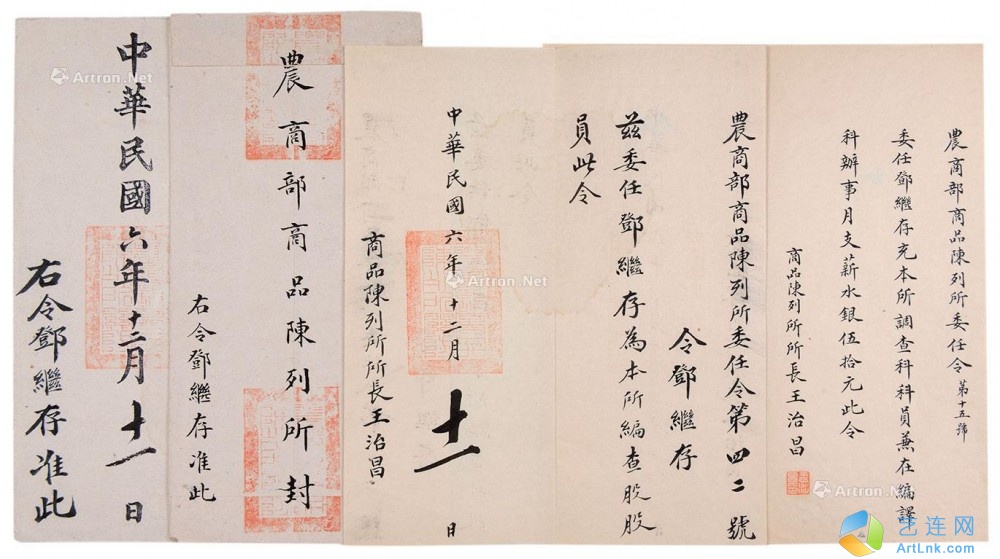 農商部商品陳列所委任令第十五號
委任鄧繼存充本所調查科科員兼在編譯
科辦事月支薪水銀伍拾元此令
商品陳列所所長王治昌
農商部商品陳列所委任令第四二號
令鄧繼存
茲委任鄧繼存為本所編查股股
員此令
中華民國六年十二月十一日
商品陳列所所長王治昌
農商部商品陳列所封
右令鄧繼存准此
中華民國六年十二月十一日
右令鄧繼存准此
Artron.Net
Artron.Net
Artron.Net
Artron.Net
艺连网
ArtLnk.com